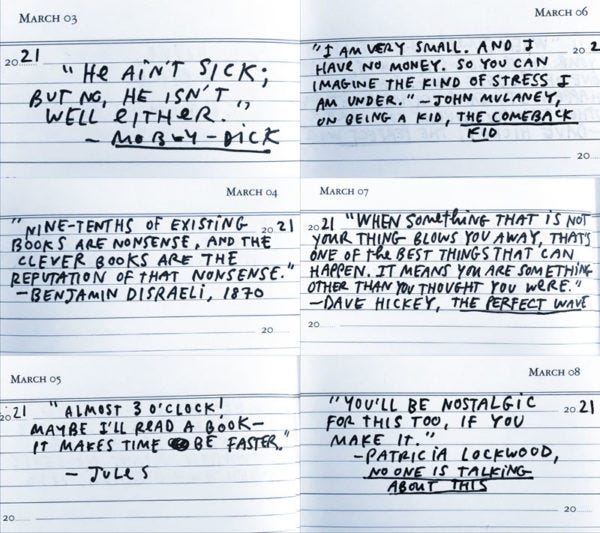 MARCH 03
2021
"HE AIN'T SICK;
BUT NO, HE ISN'T
WELL EITHER."
— MOBY-DICK
MARCH 04
"NINE-TENTHS OF EXISTING 2021
BOOKS ARE NONSENSE, AND THE
CLEVER BOOKS ARE THE
REPUTATION OF THAT NONSENSE."
—BENJAMIN DISRAELI, 1870
20
MARCH 05
2021 "ALMOST 3 O'CLOCK!
MAYBE I'LL READ A BOOK—
IT MAKES TIME BE FASTER."
— JULES
20
MARCH 06
"I AM VERY SMALL. AND I 20 2
HAVE NO MONEY. SO YOU CAN
IMAGINE THE KIND OF STRESS I
AM UNDER." —JOHN MULANEY,
ON BEING A KID, THE COMEBACK
KID
20
MARCH 07
2021 "WHEN SOMETHING THAT IS NOT
YOUR THING BLOWS YOU AWAY, THAT'S
ONE OF THE BEST THINGS THAT CAN
HAPPEN. IT MEANS YOU ARE SOMETHING
OTHER THAN YOU THOUGHT YOU WERE."
—DAVE HICKEY, THE PERFECT WAVE
20
MARCH 08
"YOU'LL BE NOSTALGIC 2021
FOR THIS TOO, IF YOU
MAKE IT."
—PATRICIA LOCKWOOD,
NO ONE IS TALKING
ABOUT THIS
20